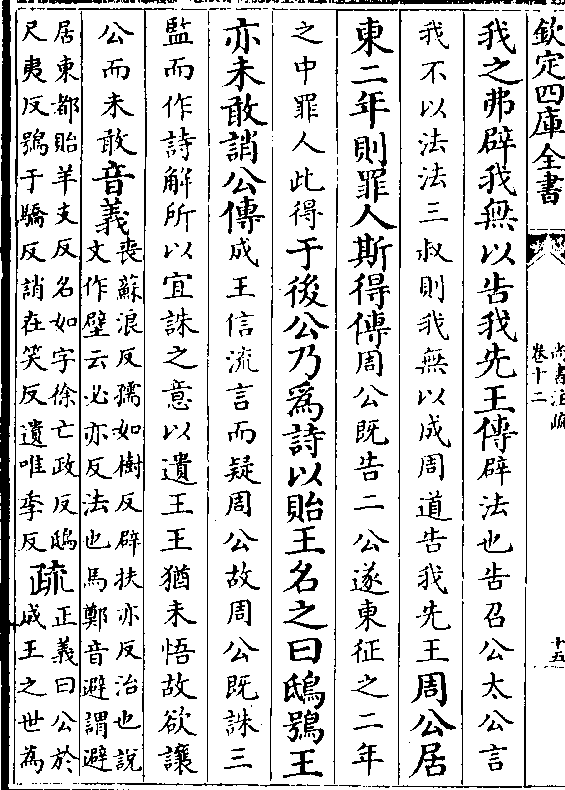 欽定四庫全書
尚書注疏
卷十二
十五
我之弗辟我無以告我先王傳辟法也告召公太公言
我不以法法三叔則我無以成周道告我先王周公居
東二年則罪人斯得傳周公既告二公遂東征之二年
之中罪人此得于後公乃為詩以貽王名之曰鴟鴞王
亦未敢誚公傳成王信流言而疑周公故周公既誅三
監而作詩解所以宜誅之意以遺王王猶未悟故欲讓
公而未敢音義喪蘇浪反孺如樹反辟扶亦反治也說
文作壁云必亦反法也馬鄭音避謂避
居東都貽羊支反名如字徐亡政反鴟
尺夷反鴞于驕反誚在笑反遺唯季反疏正義曰公於
成王之世為